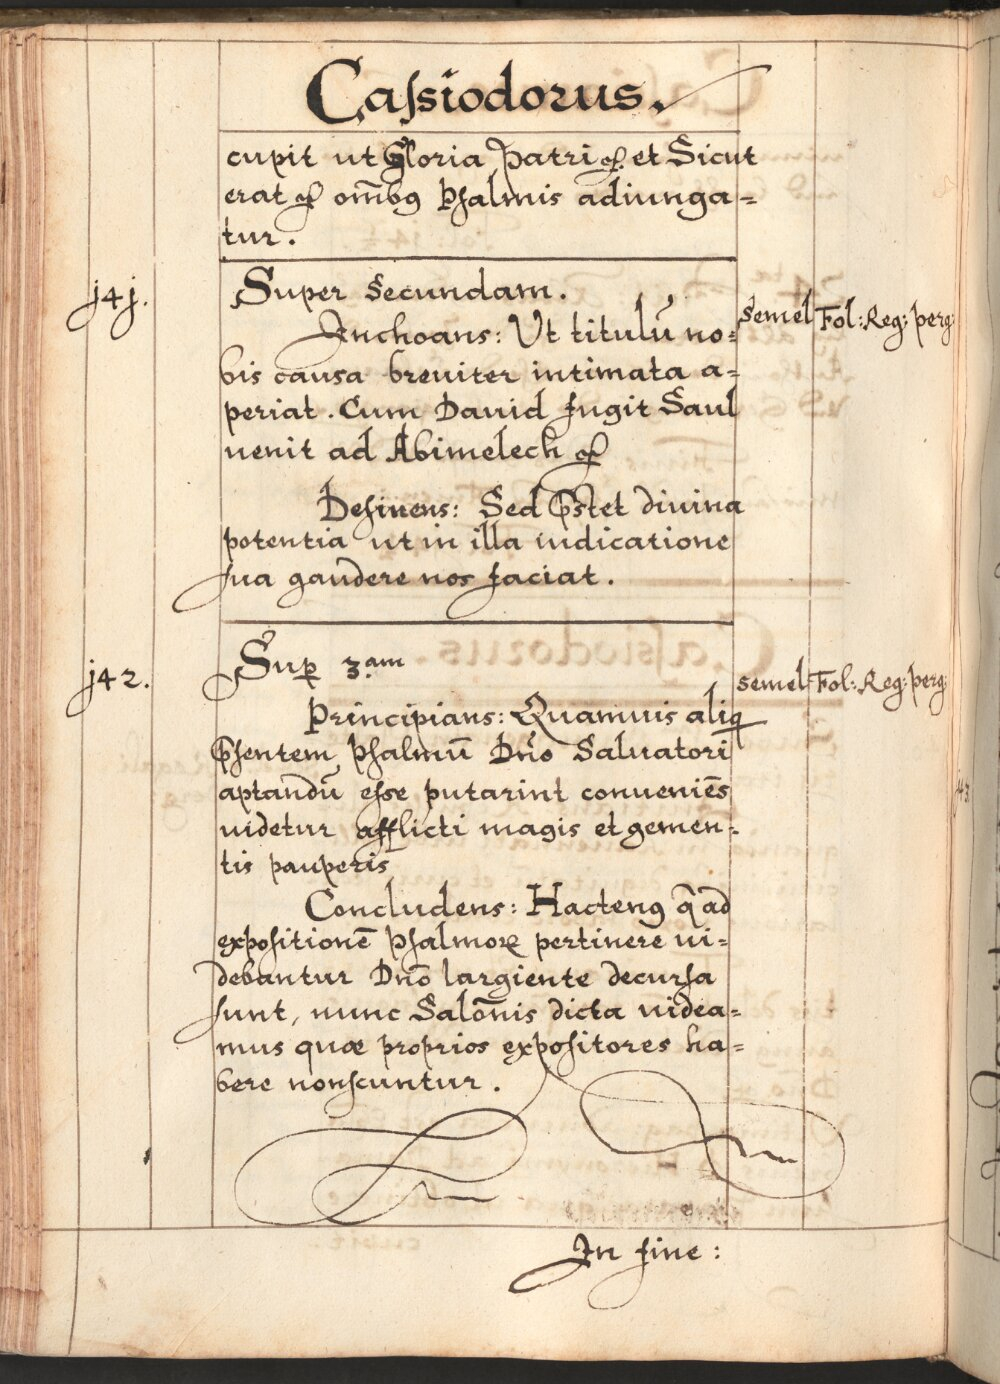 Caſsiodorus.
cupit ut Gloria Patri ꝛc. et Sicut
erat ꝛc om̄bꝰ Pſalmis adiunga=
tur.
j4j.
Super Secundam.
Semel Fol: Reg: perg:
Inchoans: Ut titulū no=
bis causa breviter intimata a=
periat. Cum David fugit Saul
venit ad Abimelech ꝛc
Desinens: Sed p̄stet divina
potentia ut in illa iudicatione
sua gaudere nos faciat.
j42.
Suꝑ 3.am
Semel Fol: Reg: perg:
Principians: Quamuis aliq
p̄sentem Pſalmū Dn̄o Salvatori
aptandū eſse putarint conveniēs
videtur afflicti magis et gemen=
tis pauperis
Concludens: Hactenꝰ q̄ ad
expositionē Pſalmoꝝ pertinere vi=
debantur Dn̄o largiente decursa
sunt, nunc Salōnis dicta videa=
mus quæ proprios expositores ha=
bere nonscuntur.
In fine: